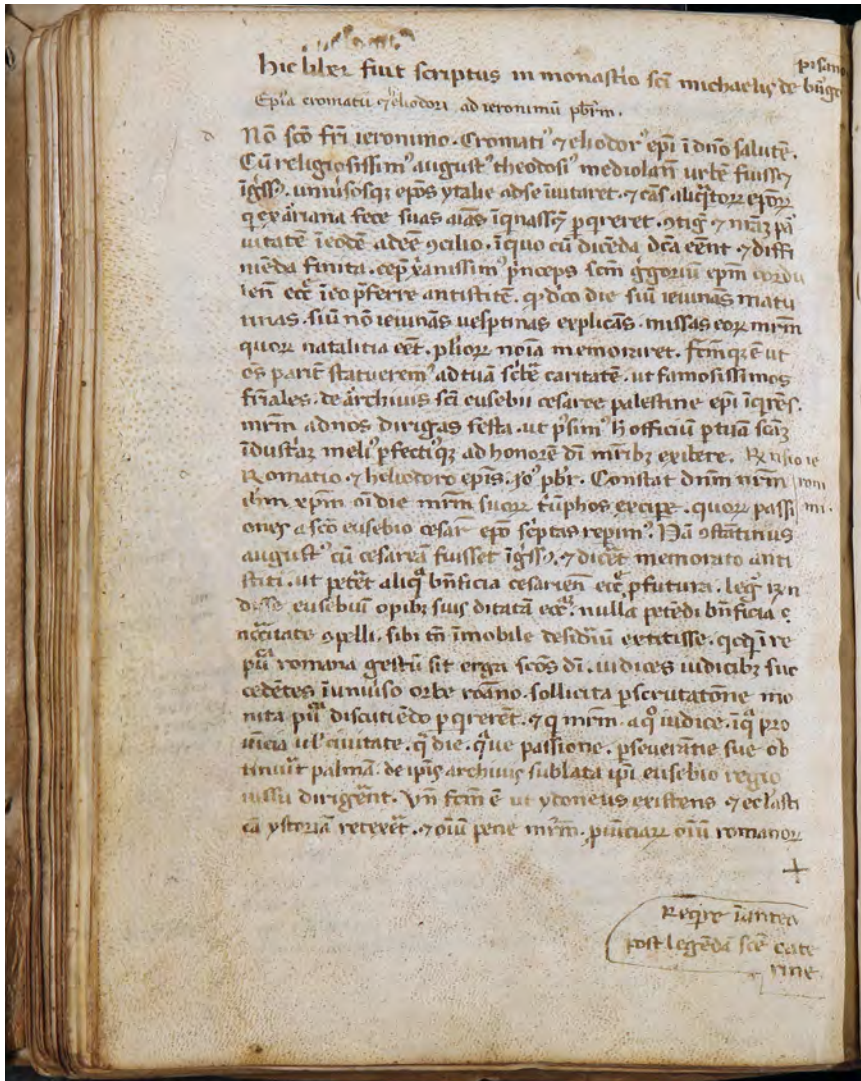 hic liber fuit scriptus in monastio sci michaelis de burgo
pisano
Epla cromatii ⁊ eliodori ad ieronimu pbrm.
No sco fri ieronimo. Cromati' ⁊ eliodor' epi i dno salute.
Cu religiosissim' august' theodosi' mediolan urbe fuiss;
igss'. uniusosq; epos ytalie ad se iuitaret. ⁊ cas aliqtoꝝ epoꝝ
q ex ariana fece suas aias iqnass; pqreret. ꝯtig ⁊ nraz pa
uitate ieode adee ꝯcilio. iquo cu diceda dca eent ⁊ diffi
nieda finita. cep xanissim' pnceps scm ggoriu epm cordu
ien ecc ieo pferre antistite. qd oco die siu ieiunas matu
tinas. siu no ieiunas uesptinas explicas. missas eoꝝ mrm
quoꝝ natalitia eet. plioꝝ noia memoraret. fcmq; e ut
os parit statuerem' ad tua scbe caritate. ut famosissimos
friales. de archiuis sci eusebii cesaree palestine epi iqres.
mrm ad nos dirigas festa. ut psim' h officiu p tua scaz
idustaz meli' pfecti'q; ad honore di mribz exibere. Rnsio ie
Romatio. ⁊ heliodoro epis. Jo' pbr. Constat dnm nrm roni
ihm xpm oi die mrm suoꝝ tuphos excipe. quoꝝ passi mi.
ones a sco eusebio cesar epo scptas repim'. Na ꝯstatinus
august' cu cesarea fuisset igss'. ⁊ dicet memorato anti
stiti. ut petet aliq bnficia cesarien ecc pfutura. leg rn
disse eusebiu opibz suis ditata ecc. nulla petedi bnficia
nccitate ꝯpelli. sibi tn imobile desidiu extitisse. qcqd i re
pu romana gestu sit erga scos di. iudices iudicibz suc
cedetes iuniuso orbe roano. sollicita pscrutatone mo
nita pu discutiedo pqreret. ⁊ q mrm. a q iudice. iq pro
uicia ul' ciuitate. q die. q ue passione. pseueratie sue ob
tinuit palma. de ipis archiuis sublata ipi eusebio regio
iussu dirigent. Vn fcm e ut ydoneus existens ⁊ ecl'asti
ca ystoria retexet. ⁊ oiu pene mrm. puiciaꝝ oiu romanoꝝ
+
Reqre i antea
post legenda sce cate
rine